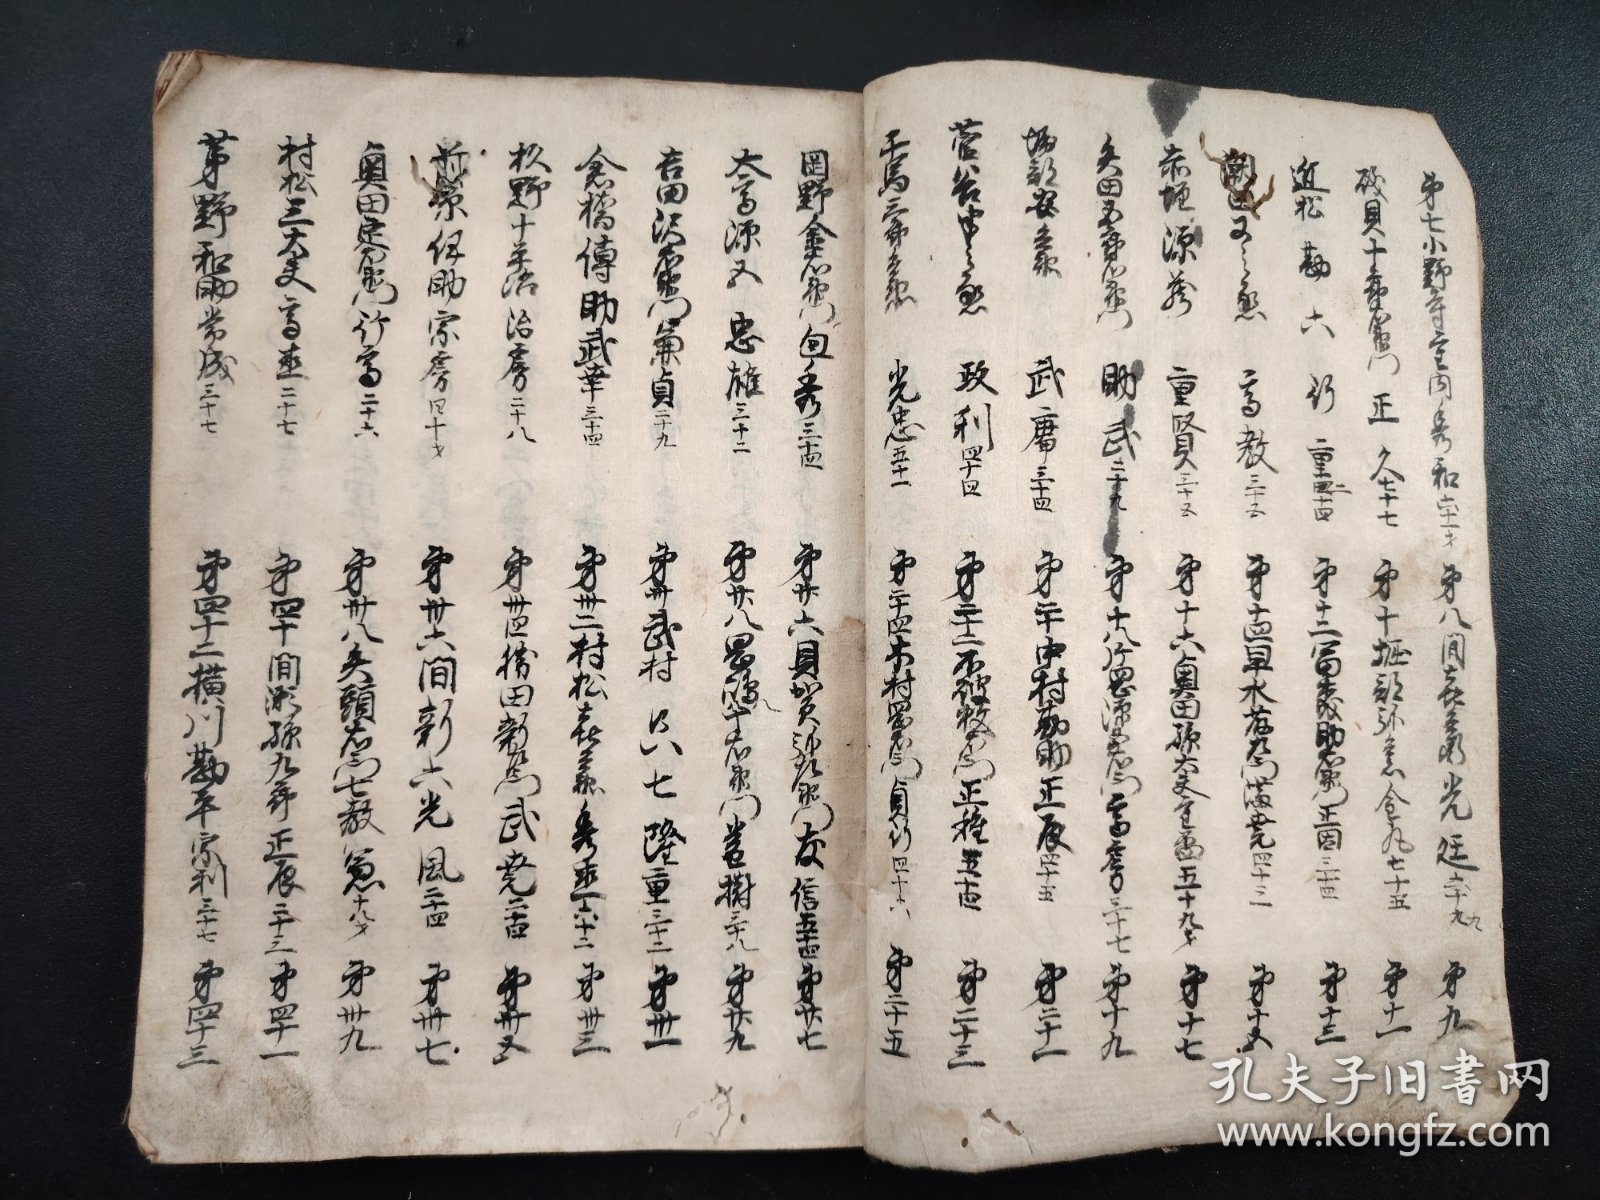 第七小野寺十内秀和六十才 第八間喜兵衛光廷六十九 第九
磯貝十郎左衛門 正久 第十堀部弥兵衛金丸七十五 第十一
近松勘六 行重 第十二富森助右衛門正因三十四 第十三
又之丞 高教三十五 第十四早水藤左衛門満尭四十二 第十五
赤垣源蔵 重賢三十五 第十六奥田孫太夫重 五十九才 第十七
矢田五郎右衛門 助武二十九 第十八片岡源五右衛門高房三十七 第十九
堀部安兵衛 武庸三十四 第二十中村勘助正辰四十五 第二十一
菅谷半之丞 政利四十四 第二十二不破数右衛門正種 第二十三
千馬三郎兵衛 光忠五十一 第二十四木村岡右衛門貞行四十六 第二十五
岡野金右衛門包秀二十四 第廿六貝賀弥左衛門友信五十四 第廿七
大高源五忠雄三十二 第廿八 岡嶋八十右衛門常樹三十八 第廿九
吉田沢右衛門兼貞二十九 第卅武林只七隆重三十二 第卅一
倉橋傳助武幸三十四 第卅二村松喜兵衛秀直六十二 第卅三
杉野十平治治房二十八 第卅四勝田新左衛門武尭二十四 第卅五
前原伊助宗房四十才 第卅六間新六光風二十四 第卅七
奥田定右衛門行高二十六 第卅八矢頭右衛門七教兼十八才 第卅九
村松三太夫高直二十七 第四十間瀬孫九郎正辰二十三 第四十一
茅野和助常成三十七 第四十二横川勘平宗利三十七 第四十三
孔夫子旧书网
www.kongfz.com